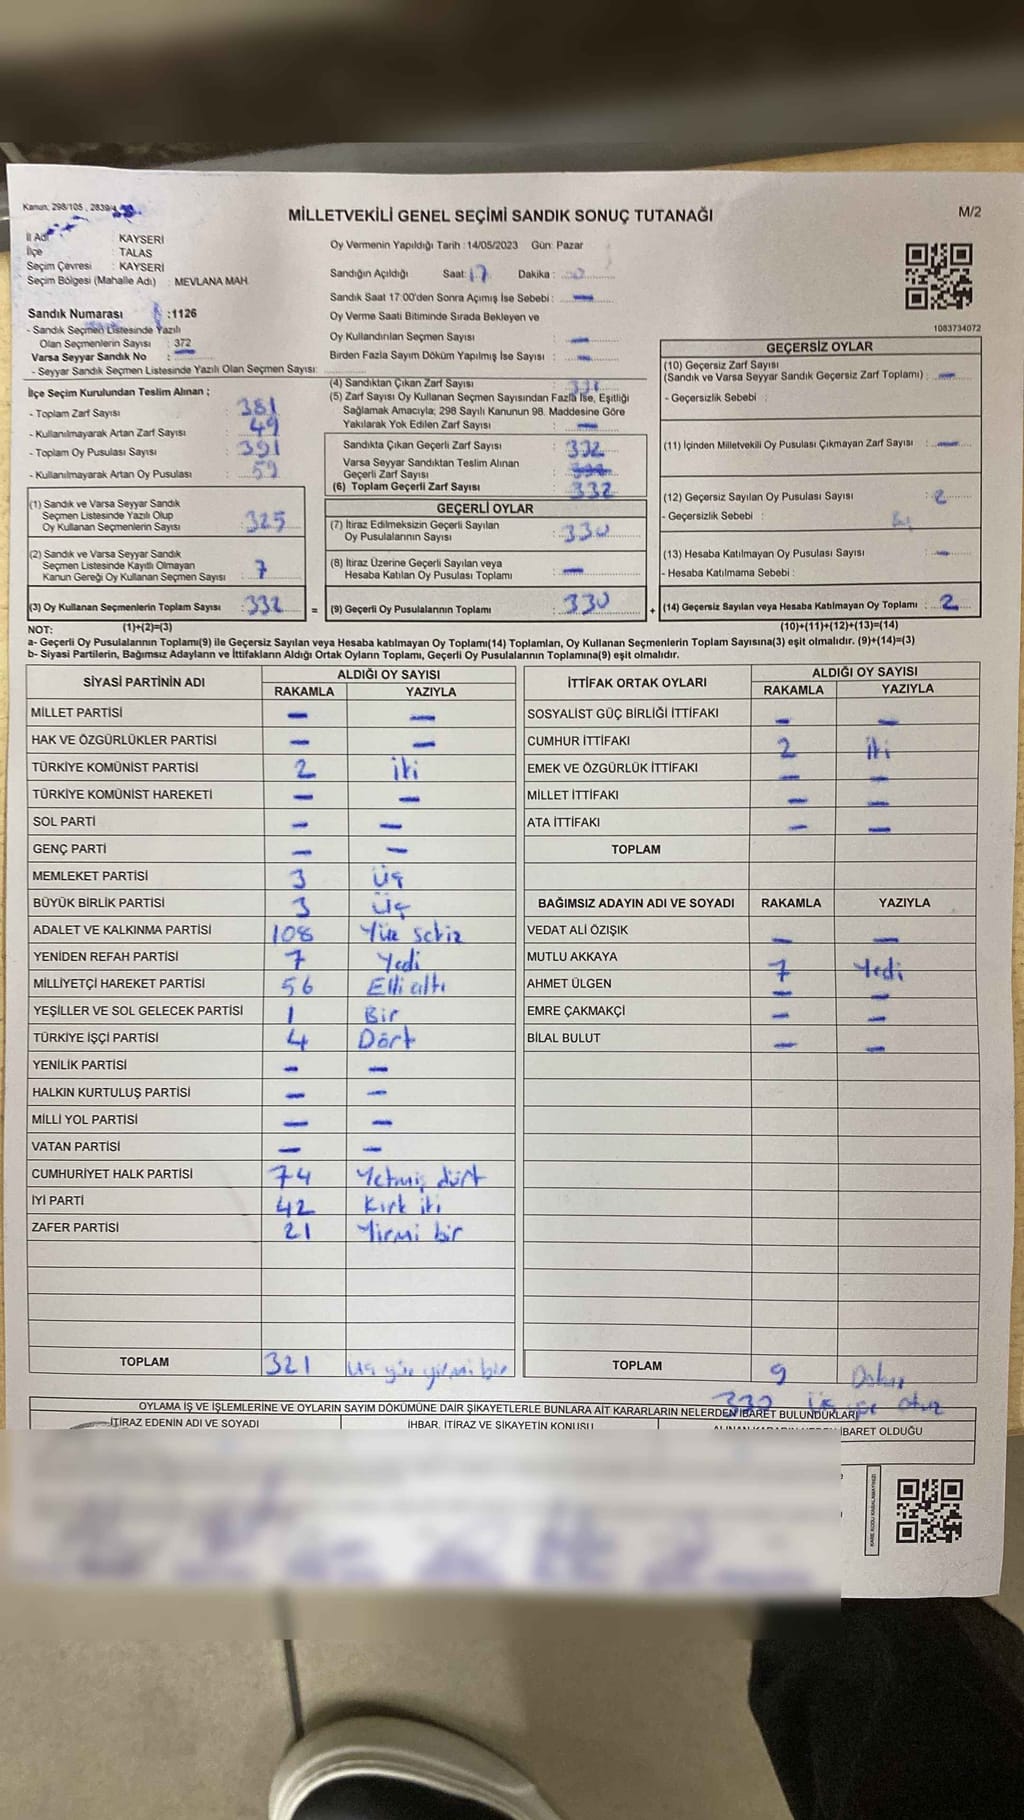 Kanun: 298/105 , 2839/4
MİLLETVEKİLİ GENEL SEÇİMİ SANDIK SONUÇ TUTANAĞI
M/2
İl Adı : KAYSERİ
İlçe : TALAS
Seçim Çevresi : KAYSERİ
Seçim Bölgesi (Mahalle Adı) : MEVLANA MAH.
Sandık Numarası :1126
- Sandık Seçmen Listesinde Yazılı
Olan Seçmenlerin Sayısı : 372
Varsa Seyyar Sandık No :
- Seyyar Sandık Seçmen Listesinde Yazılı Olan Seçmen Sayısı:
Oy Vermenin Yapıldığı Tarih : 14/05/2023 Gün: Pazar
Sandığın Açıldığı Saat: 17 Dakika :
Sandık Saat 17:00'den Sonra Açımış İse Sebebi : -
Oy Verme Saati Bitiminde Sırada Bekleyen ve
Oy Kullandırılan Seçmen Sayısı : -
Birden Fazla Sayım Döküm Yapılmış İse Sayısı : -
1083734072
İlçe Seçim Kurulundan Teslim Alınan ;
- Toplam Zarf Sayısı : 381
- Kullanılmayarak Artan Zarf Sayısı : 49
- Toplam Oy Pusulası Sayısı : 391
- Kullanılmayarak Artan Oy Pusulası : 59
(1) Sandık ve Varsa Seyyar Sandık
Seçmen Listesinde Yazılı Olup
Oy Kullanan Seçmenlerin Sayısı : 325
(2) Sandık ve Varsa Seyyar Sandık
Seçmen Listesinde Kayıtlı Olmayan
Kanun Gereği Oy Kullanan Seçmen Sayısı : 7
(3) Oy Kullanan Seçmenlerin Toplam Sayısı : 332 =
(4) Sandıktan Çıkan Zarf Sayısı :
(5) Zarf Sayısı Oy Kullanan Seçmen Sayısından Fazla İse, Eşitliği
Sağlamak Amacıyla; 298 Sayılı Kanunun 98. Maddesine Göre
Yakılarak Yok Edilen Zarf Sayısı : -
Sandıkta Çıkan Geçerli Zarf Sayısı : 332
Varsa Seyyar Sandıktan Teslim Alınan
Geçerli Zarf Sayısı :
(6) Toplam Geçerli Zarf Sayısı : 332
GEÇERLİ OYLAR
(7) İtiraz Edilmeksizin Geçerli Sayılan
Oy Pusulalarının Sayısı : 330
(8) İtiraz Üzerine Geçerli Sayılan veya
Hesaba Katılan Oy Pusulası Toplamı : -
(9) Geçerli Oy Pusulalarının Toplamı : 330 +
GEÇERSİZ OYLAR
(10) Geçersiz Zarf Sayısı
(Sandık ve Varsa Seyyar Sandık Geçersiz Zarf Toplamı) : -
- Geçersizlik Sebebi :
(11) İçinden Milletvekili Oy Pusulası Çıkmayan Zarf Sayısı : -
(12) Geçersiz Sayılan Oy Pusulası Sayısı : 2
- Geçersizlik Sebebi :
(13) Hesaba Katılmayan Oy Pusulası Sayısı : -
- Hesaba Katılmama Sebebi :
(14) Geçersiz Sayılan veya Hesaba Katılmayan Oy Toplamı : 2
NOT: (1)+(2)=(3) (10)+(11)+(12)+(13)=(14)
a- Geçerli Oy Pusulalarının Toplamı(9) ile Geçersiz Sayılan veya Hesaba katılmayan Oy Toplamı(14) Toplamları, Oy Kullanan Seçmenlerin Toplam Sayısına(3) eşit olmalıdır. (9)+(14)=(3)
b- Siyasi Partilerin, Bağımsız Adayların ve İttifakların Aldığı Ortak Oyların Toplamı, Geçerli Oy Pusulalarının Toplamına(9) eşit olmalıdır.
SİYASİ PARTİNİN ADI ALDIĞI OY SAYISI
RAKAMLA YAZIYLA
MİLLET PARTİSİ - -
HAK VE ÖZGÜRLÜKLER PARTİSİ - -
TÜRKİYE KOMÜNİST PARTİSİ 2 İki
TÜRKİYE KOMÜNİST HAREKETİ - -
SOL PARTİ - -
GENÇ PARTİ - -
MEMLEKET PARTİSİ 3 Üç
BÜYÜK BİRLİK PARTİSİ 3 Üç
ADALET VE KALKINMA PARTİSİ 108 Yüz sekiz
YENİDEN REFAH PARTİSİ 7 Yedi
MİLLİYETÇİ HAREKET PARTİSİ 56 Elli altı
YEŞİLLER VE SOL GELECEK PARTİSİ 1 Bir
TÜRKİYE İŞÇİ PARTİSİ 4 Dört
YENİLİK PARTİSİ - -
HALKIN KURTULUŞ PARTİSİ - -
MİLLİ YOL PARTİSİ - -
VATAN PARTİSİ - -
CUMHURİYET HALK PARTİSİ 74 Yetmiş dört
İYİ PARTİ 42 Kırk iki
ZAFER PARTİSİ 21 Yirmi bir
TOPLAM 321 Üç yüz yirmi bir
İTTİFAK ORTAK OYLARI ALDIĞI OY SAYISI
RAKAMLA YAZIYLA
SOSYALİST GÜÇ BİRLİĞİ İTTİFAKI - -
CUMHUR İTTİFAKI 2 İki
EMEK VE ÖZGÜRLÜK İTTİFAKI - -
MİLLET İTTİFAKI - -
ATA İTTİFAKI - -
TOPLAM
BAĞIMSIZ ADAYIN ADI VE SOYADI RAKAMLA YAZIYLA
VEDAT ALİ ÖZIŞIK - -
MUTLU AKKAYA 7 Yedi
AHMET ÜLGEN - -
EMRE ÇAKMAKÇİ - -
BİLAL BULUT - -
TOPLAM 9 Dokuz
330 Üç yüz otuz
OYLAMA İŞ VE İŞLEMLERİNE VE OYLARIN SAYIM DÖKÜMÜNE DAİR ŞİKAYETLERLE BUNLARA AİT KARARLARIN NELERDEN İBARET BULUNDUKLARI
İTİRAZ EDENİN ADI VE SOYADI İHBAR, İTİRAZ VE ŞİKAYETİN KONUSU ALINAN KARARIN NEDEN İBARET OLDUĞU